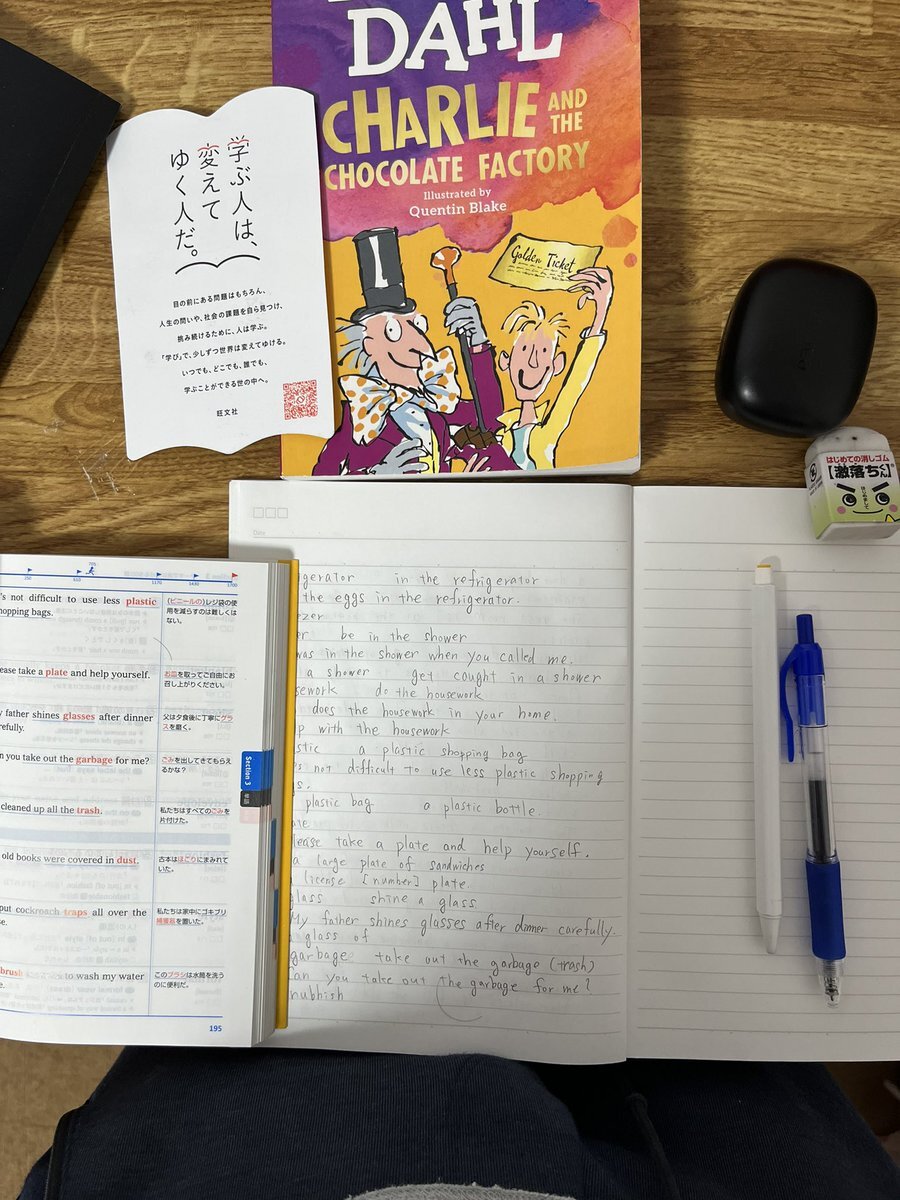 DAHL
CHARLIE AND THE
CHOCOLATE FACTORY
Illustrated by
Quentin Blake
Golden Ticket
学ぶ人は、
変えて
ゆく人だ。
目の前にある問題はもちろん、
人生の問いや、社会の課題を自ら見つけ、
挑み続けるために、人は学ぶ。
「学び」で、少しずつ世界は変えてゆける。
いつでも、どこでも、誰でも、
学ぶことができる世の中へ。
旺文社
はじめての消しゴム
【激落ちくん】
はじめまして
Date
igerator in the refrigerator
the eggs in the refrigerator.
ezer
er be in the shower
was in the shower when you called me.
a shower get caught in a shower
sework do the housework
does the housework in your home.
p with the housework
stic a plastic shopping bag
's not difficult to use less plastic shopping
s.
plastic bag a plastic bottle.
ate
lease take a plate and help yourself.
a large plate of sandwiches
license [number] plate
lass shine a glass
My father shines glasses after dinner carefully.
glass of
garbage take out the garbage (trash)
an you take out the garbage for me?
nubhish
250 510 705 1170 1430 1700
's not difficult to use less plastic
hopping bags.
(ビニールの)レジ袋の使
用を減らすのは難しくは
ない。
ease take a plate and help yourself.
お皿を取ってご自由にお
召し上がりください。
y father shines glasses after dinner
refully.
父は夕食後に丁寧にグラ
スを磨く。
n you take out the garbage for me?
ごみを出してきてもらえ
るかな?
cleaned up all the trash.
私たちはすべてのごみを
片付けた。
old books were covered in dust.
古本はほこりにまみれて
いた。
put cockroach traps all over the
se.
私たちは家中にゴキブリ
捕獲器を置いた。
brush to wash my water
e.
このブラシは水筒を洗う
のに便利だ。
Section 3
単語
195